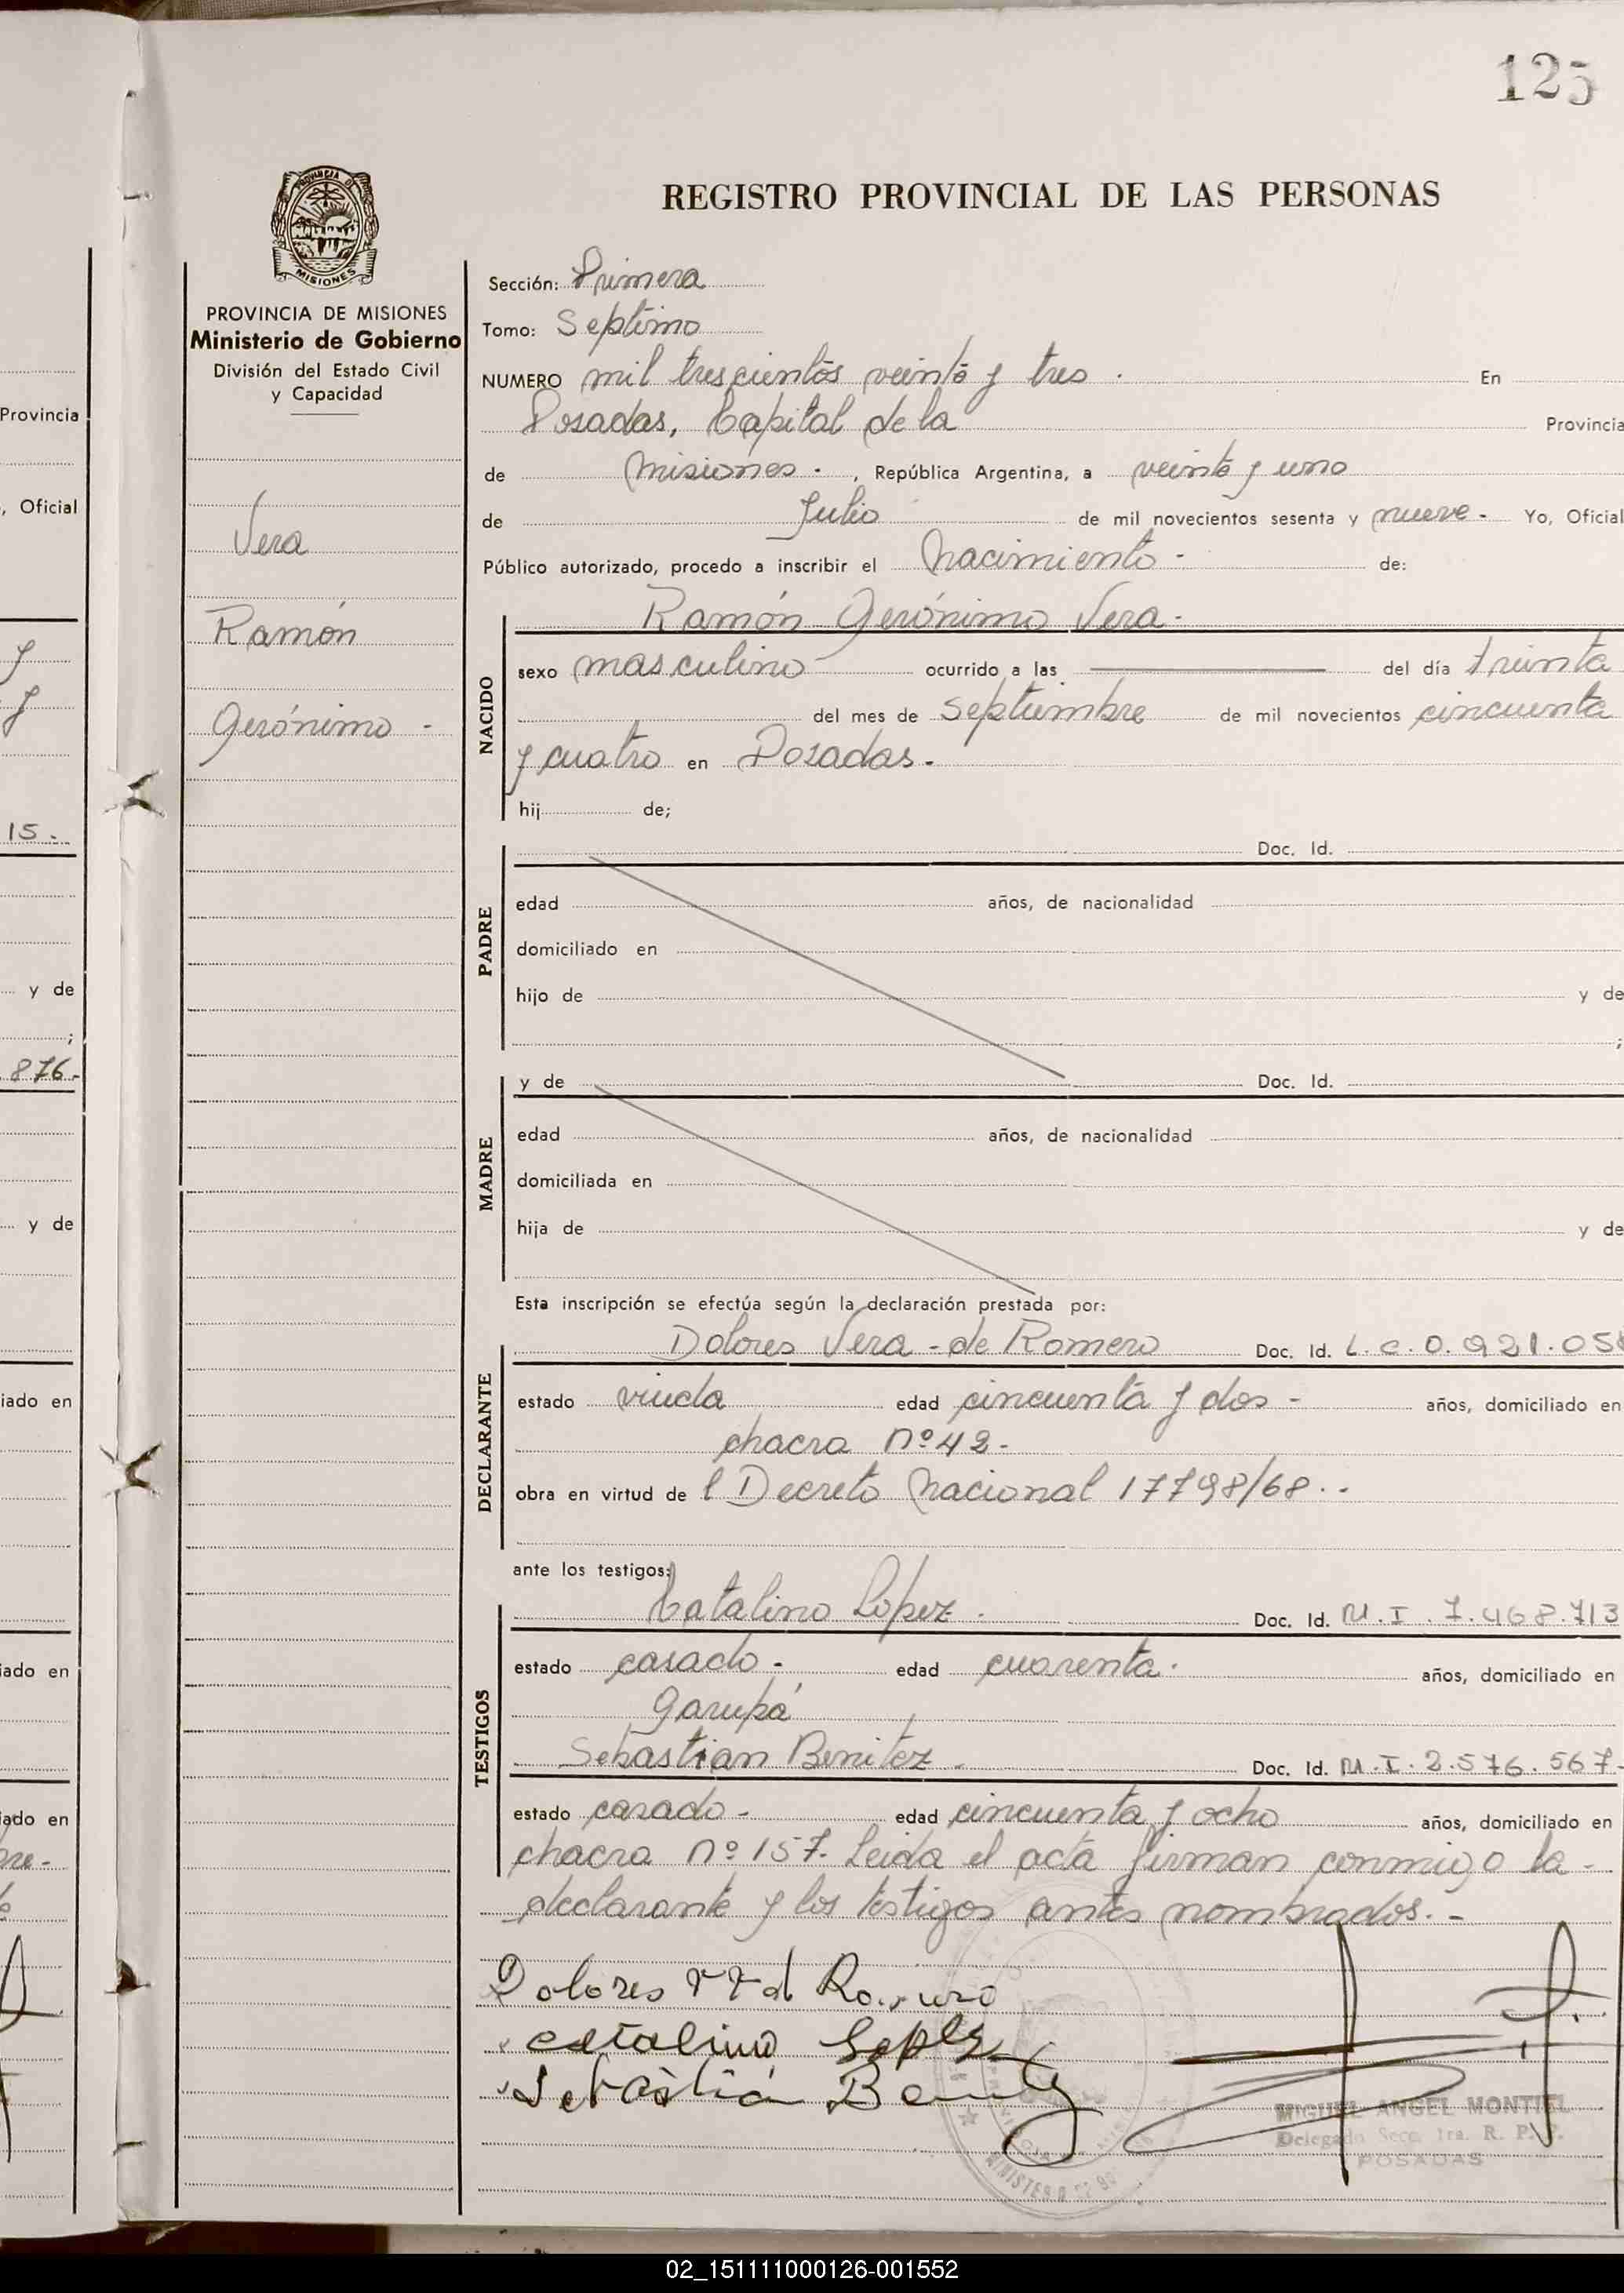 125
REGISTRO PROVINCIAL DE LAS PERSONAS
PROVINCIA DE MISIONES
Ministerio de Gobierno
División del Estado Civil
y Capacidad
Vera
Ramón
Gerónimo -
Sección: Primera
Tomo: Septimo
NUMERO mil trescientos veinte y tres . En
Posadas, Capital de la Provincia
de Misiones - , República Argentina, a veinte y uno
de Julio de mil novecientos sesenta y nueve - Yo, Oficial
Público autorizado, procedo a inscribir el Nacimiento - de:
Ramón Gerónimo Vera -
NACIDO
sexo masculino ocurrido a las del día treinta
del mes de Septiembre de mil novecientos cincuenta
y cuatro en Posadas.
hij de;
PADRE
Doc. Id.
edad años, de nacionalidad
domiciliado en
hijo de y de
;
MADRE
y de Doc. Id.
edad años, de nacionalidad
domiciliada en
hija de y de
Esta inscripción se efectúa según la declaración prestada por:
DECLARANTE
Dolores Vera - de Romero Doc. Id. L.C. 0.921.05
estado viuda edad cincuenta y dos - años, domiciliado en
chacra nº 42 -
obra en virtud de l Decreto Nacional 17798/68 . -
ante los testigos:
TESTIGOS
Catalino López . Doc. Id. M.I. 7.468.713
estado casado - edad cuarenta . años, domiciliado en
Garupá
Sebastian Benitez - Doc. Id. M.I. 2.576.567 -
estado casado - edad cincuenta y ocho años, domiciliado en
chacra nº 157. Leida el acta firman conmigo la -
declarante y los testigos antes nombrados. -
Dolores V V d Romero
Catalino Lopez
Sebastián Benitez
MIGUEL ANGEL MONTIEL
Delegado Secc. 1ra. R. P. P.
POSADAS
Provincia
, Oficial
15 -
y de
;
876 -
y de
iado en
iado en
iado en
02_151111000126-001552